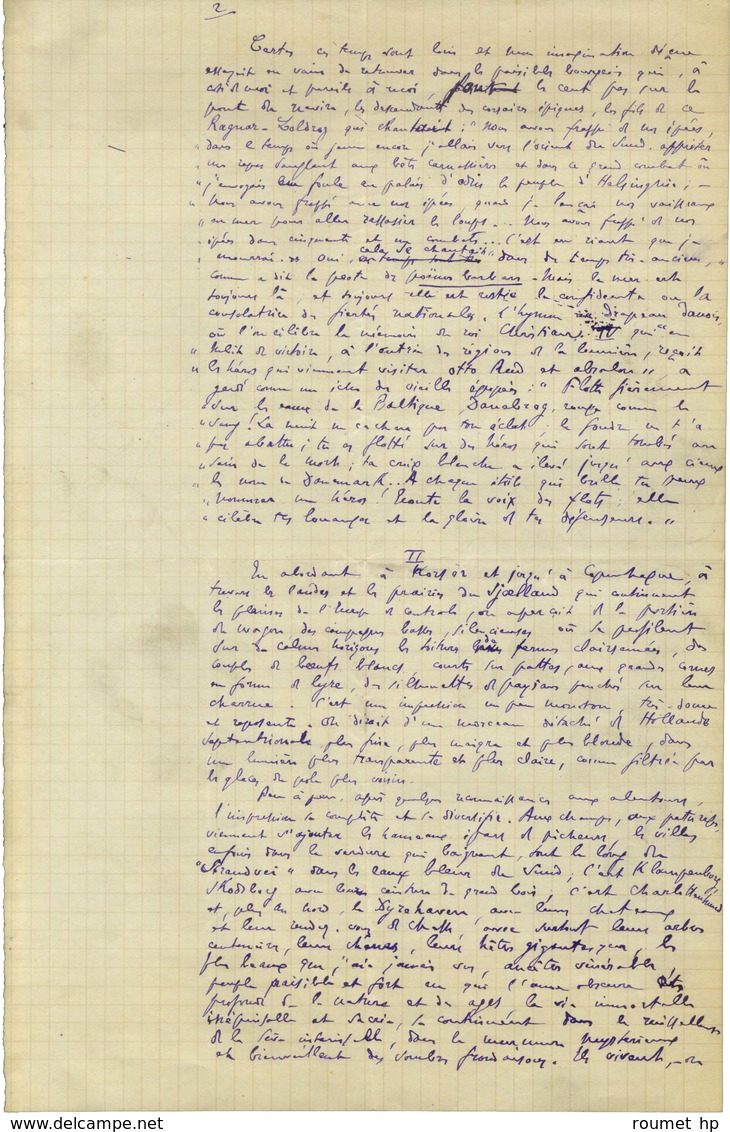 2
Certes ces temps sont loin et mon imagination
essayait en vain de retrouver dans les paisibles bourgeois qui, à
côté de moi et pareils à moi, font les cent pas sur le
pont du navire, les descendants des corsaires épiques, les fils de ce
Ragnar-Lodbrog qui chantait : "Nous avons frappé de nos épées,
dans le temps où jeune encore j'allais vers l'orient du Sund apprêter
un repas sanglant aux bêtes carnassières et dans ce grand combat où
"j'envoyais en foule au palais d'Odin le peuple d'Helsinghie ; —
"Nous avons frappé de nos épées, quand je lançai nos vaisseaux
"en mer pour aller rassasier les loups... Nous avons frappé de nos
"épées dans cinquante et un combats... C'est en riant que je
"mourrai." Oui cela se chantait "dans des temps très-anciens,"
comme a dit le poète des poèmes barbares. Mais la mer est
toujours là, et toujours elle est restée la confidente ou la
consolatrice des fiertés nationales. L'hymne du Drapeau danois,
où l'on célèbre la mémoire du roi Christian IV qui "en
"habit de victoire, à l'entrée des régions de la lumière, reçoit
"les héros qui viennent visiter Otto Rud et Absalon", a
gardé comme un écho des vieilles épopées : "Flotte fièrement
"sur les eaux de la Baltique, Danebrog rouge comme le
"sang ! La nuit ne cachera pas ton éclat ; la foudre ne t'a
"pas abattu ; tu as flotté sur des héros qui sont tombés au
"sein de la mort ; ta croix blanche a élevé jusqu'aux cieux
"le nom de Danemark... A chaque étoile qui brille tu peux
"nommer un héros ! Écoute la voix des flots ; elle
"célèbre tes louanges et la gloire de tes défenseurs."
II
En abordant à Korsör et jusqu'à Copenhague, à
travers les landes et les prairies du Sjælland qui continuent
les plaines de l'Europe centrale, on aperçoit de la portière
du wagon, des campagnes basses, silencieuses où se profilent
sur de calmes horizons les toitures des fermes clairsemées, des
couples de bœufs blancs, courts sur pattes, aux grandes cornes
en forme de lyre, des silhouettes de paysans penchés sur leur
charrue. C'est une impression un peu monotone, très-douce
et reposante. On dirait d'un morceau détaché de Hollande
septentrionale, plus fine, plus maigre et plus blonde, dans
une lumière plus transparente et plus claire, comme filtrée par
les glaces du pôle plus voisin.
Peu à peu, après quelques reconnaissances aux alentours,
l'impression se complète et se diversifie. Aux champs, aux pâturages,
viennent s'ajouter les hameaux épars de pêcheurs, les villas
enfouis dans la verdure qui baignent, tout le long du
"Strandvei" dans les eaux bleues du Sund ; c'est Klampenborg,
Skodsborg avec leurs ceintures de grands bois ; c'est Charlottenlund
et, plus au nord, le Dyrehaven, avec leurs châteaux
et leurs rendez-vous de chasse, avec surtout leurs arbres
centenaires, leurs chênes, leurs hêtres gigantesques, les
plus beaux que j'aie jamais vus, ancêtres vénérables,
peuple paisible et fort en qui l'âme obscure
profonde de la nature et des âges la vie immortelle
et sacrée, se continuent dans le ruissellement
de la sève intarissable, dans le murmure mystérieux
et bienveillant des sombres frondaisons. Ils vivent, on
roumet hp